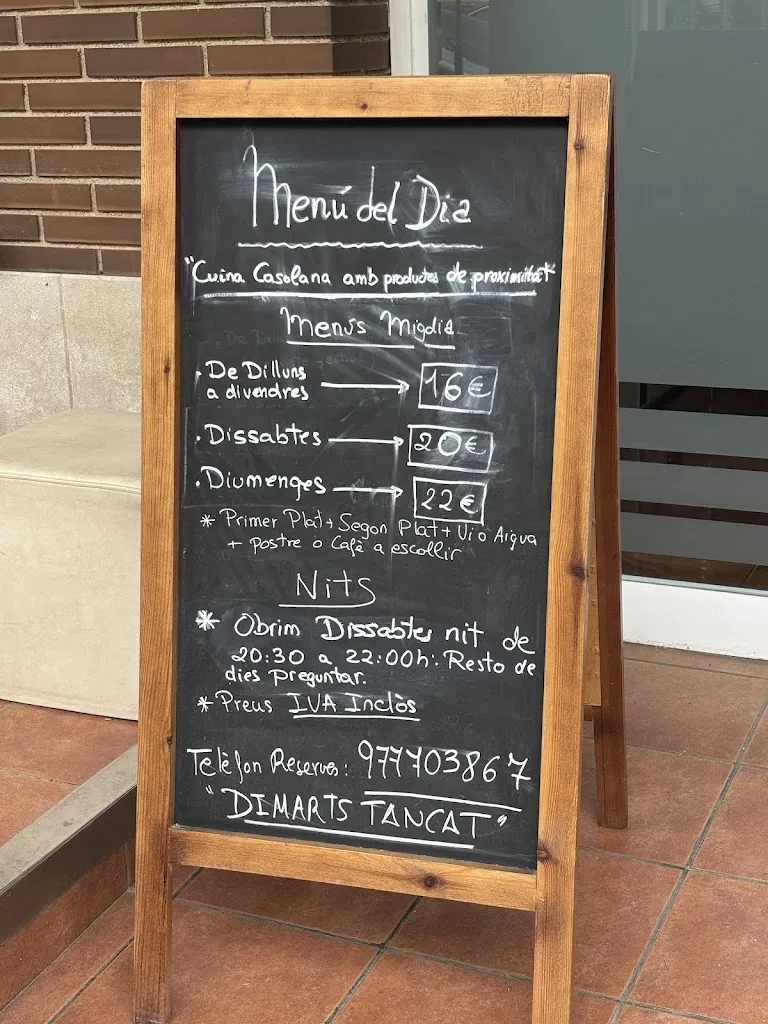 Menú del Dia
"Cuina Casolana amb productes de proximitat"
Menús Migdia
· De Dilluns
a divendres → 16€
· Dissabtes → 20€
· Diumenges → 22€
* Primer Plat + Segon Plat + Vi o Aigua
+ postre o Cafè a escollir
Nits
* Obrim Dissabtes nit de
20:30 a 22:00h. Resto de
dies preguntar.
* Preus IVA Inclòs
Telèfon Reserves: 977703867
"DIMARTS TANCAT"